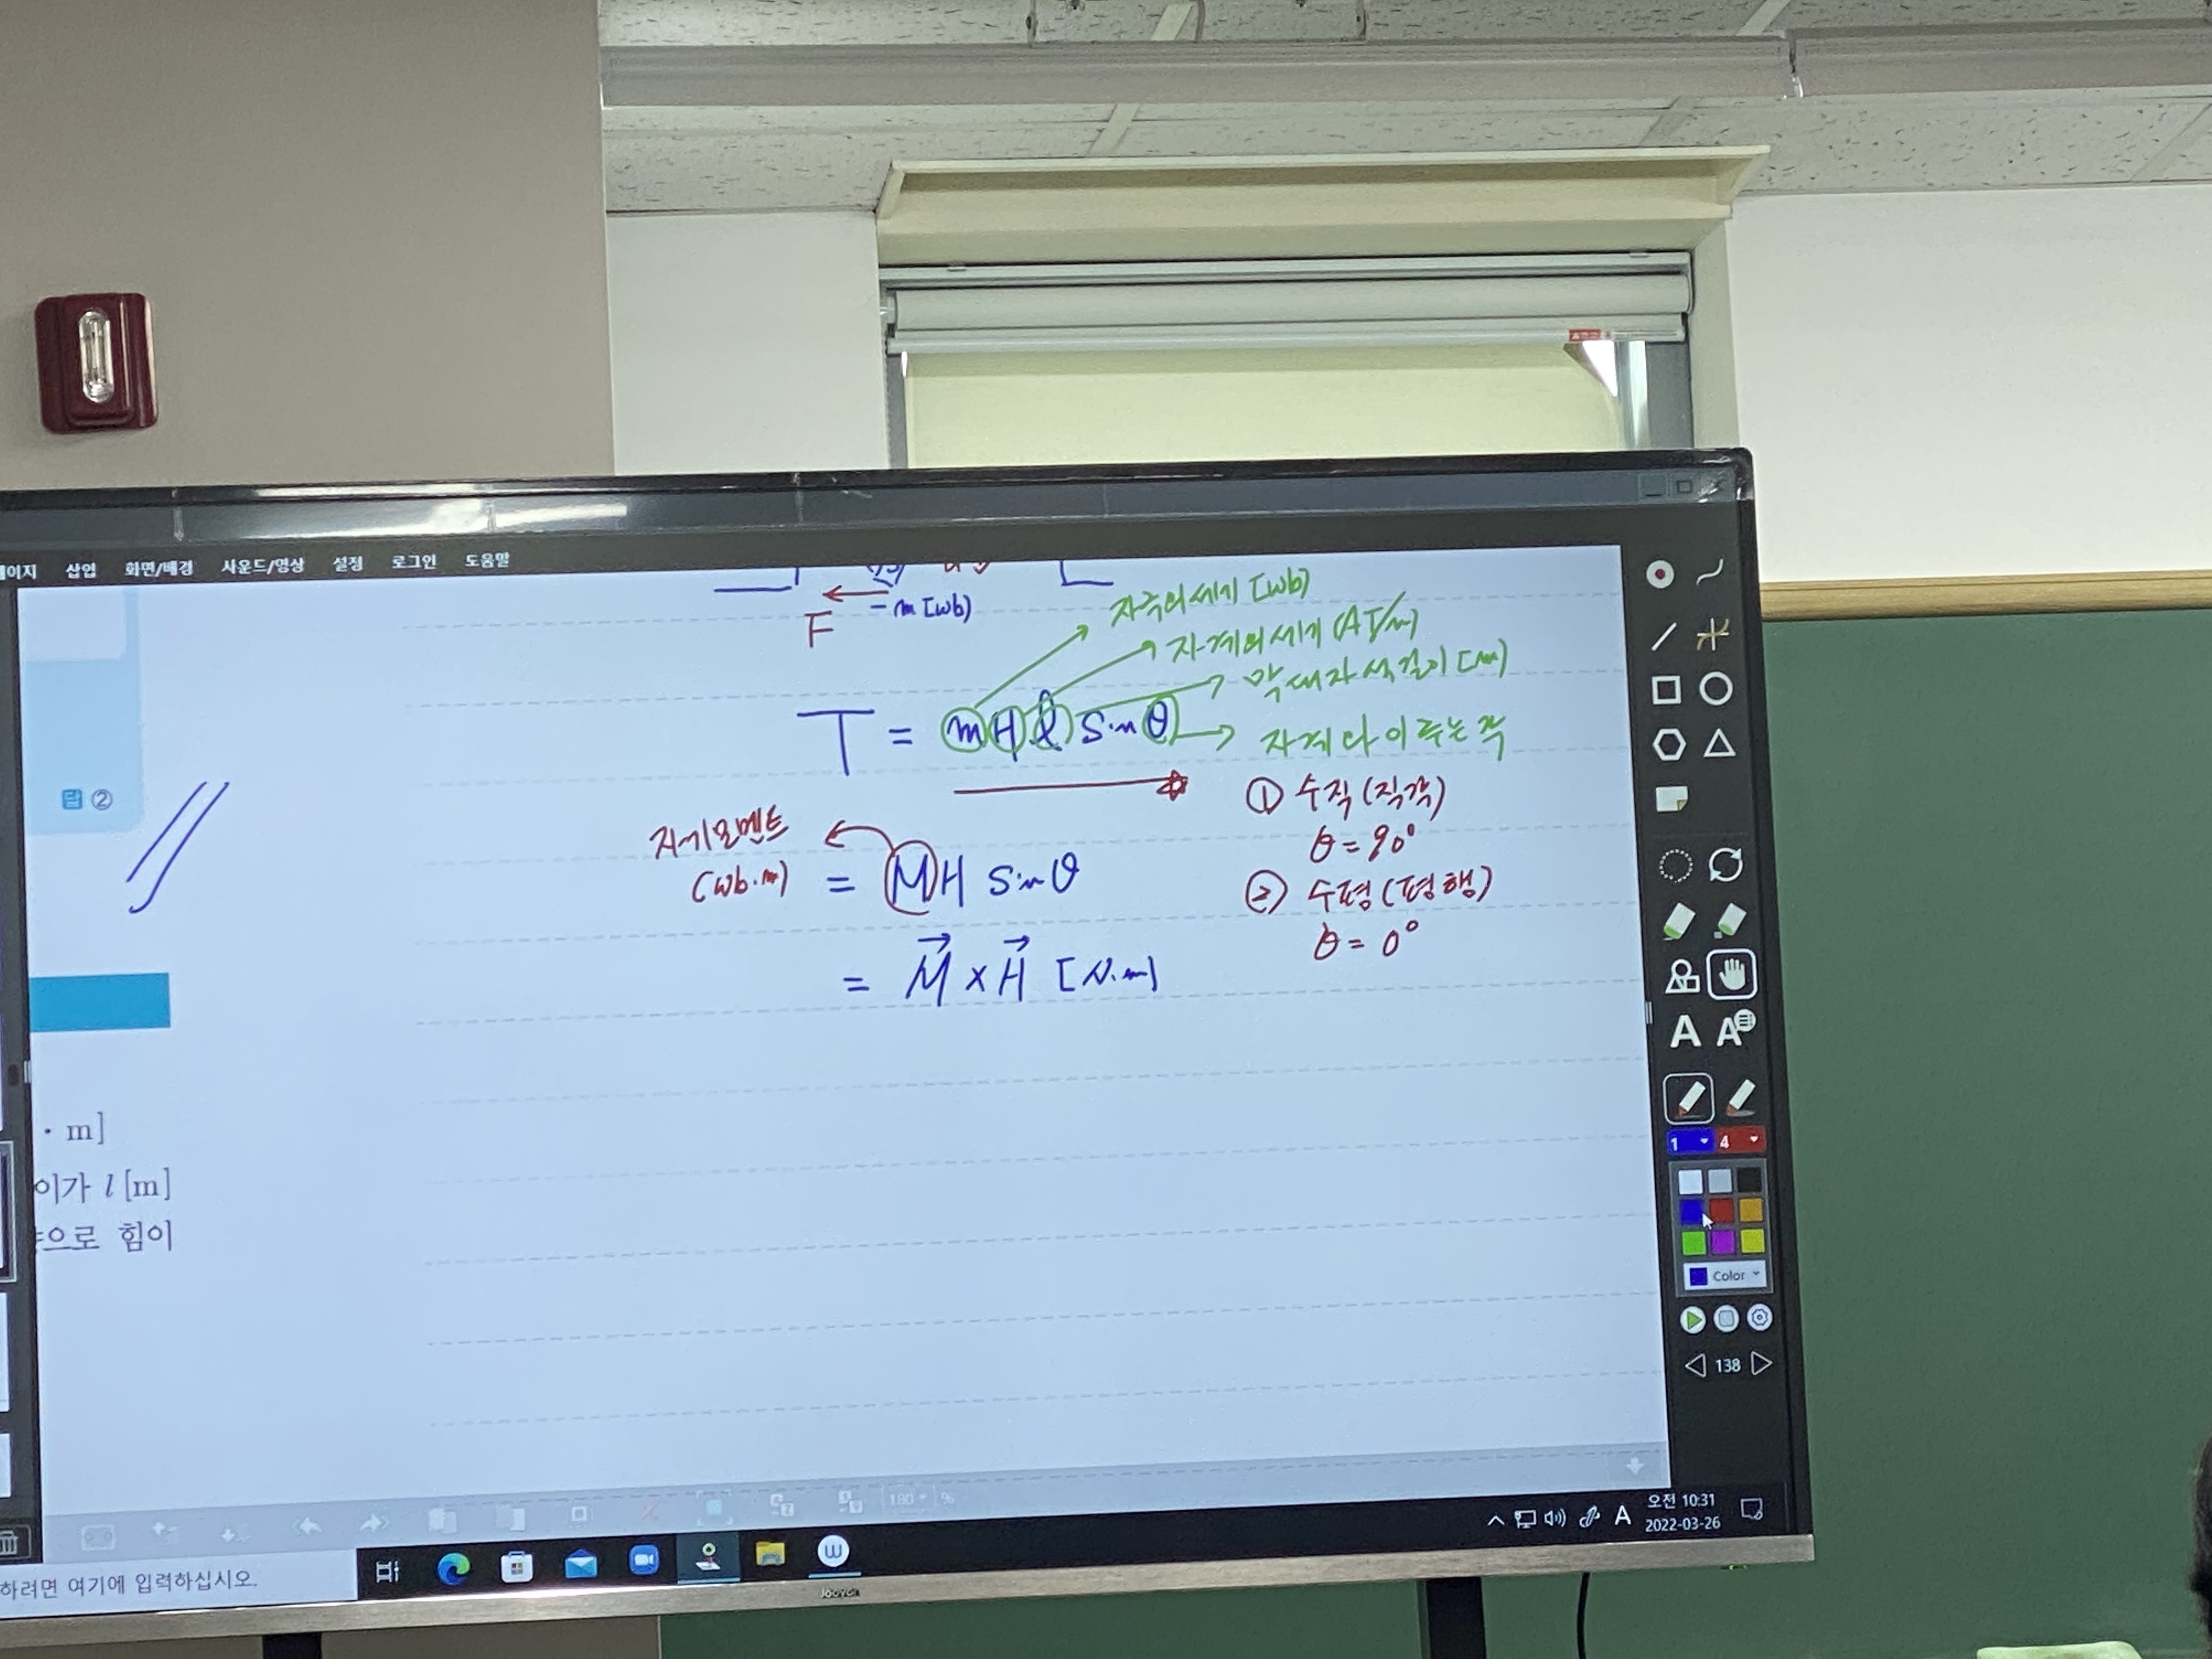 이지 삽입 화면/배경 사운드/영상 설정 로그인 도움말
F
-m [wb)
자극의세기 [wb)
자계의세기 (AT/m)
막대자석길이 [m)
T = mHl sinθ
자계와 이루는 각
답 ②
① 수직 (직각)
θ = 90°
자기모멘트
(wb·m)
= MH sinθ
② 수평 (평행)
θ = 0°
= M⃗ × H⃗ [N·m]
· m]
이가 l [m]
으로 힘이
A A
1 4
Color
138
180 %
A
오전 10:31
2022-03-26
하려면 여기에 입력하십시오.